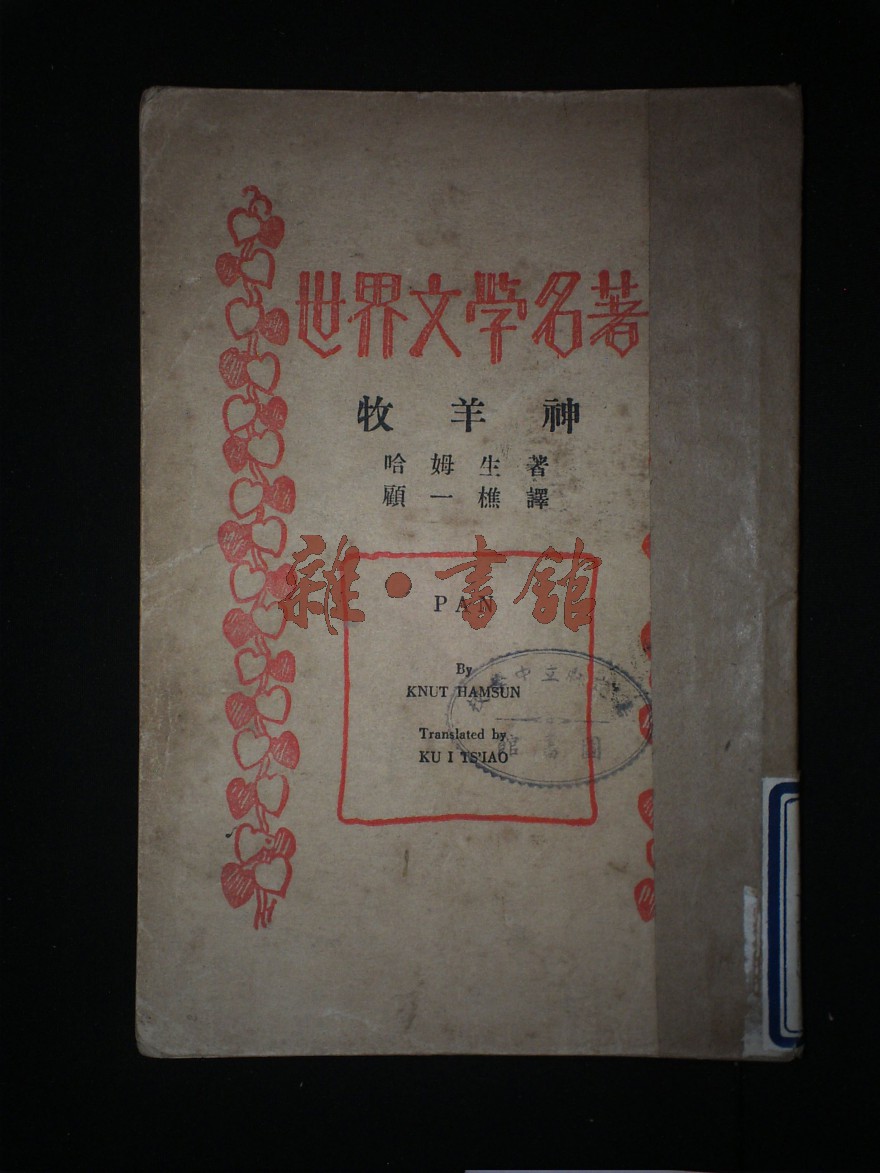 世界文學名著
牧羊神
哈姆生著
顧一樵譯
雜·書館
PAN
By
KNUT HAMSUN
Translated by
KU I TS'IAO
圖書館